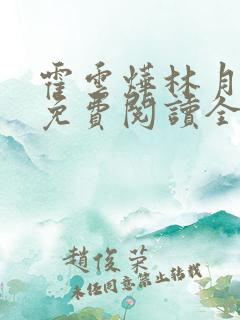 霍雲燁林月
免費閱讀全
趙俊榮
未經同意禁止轉載